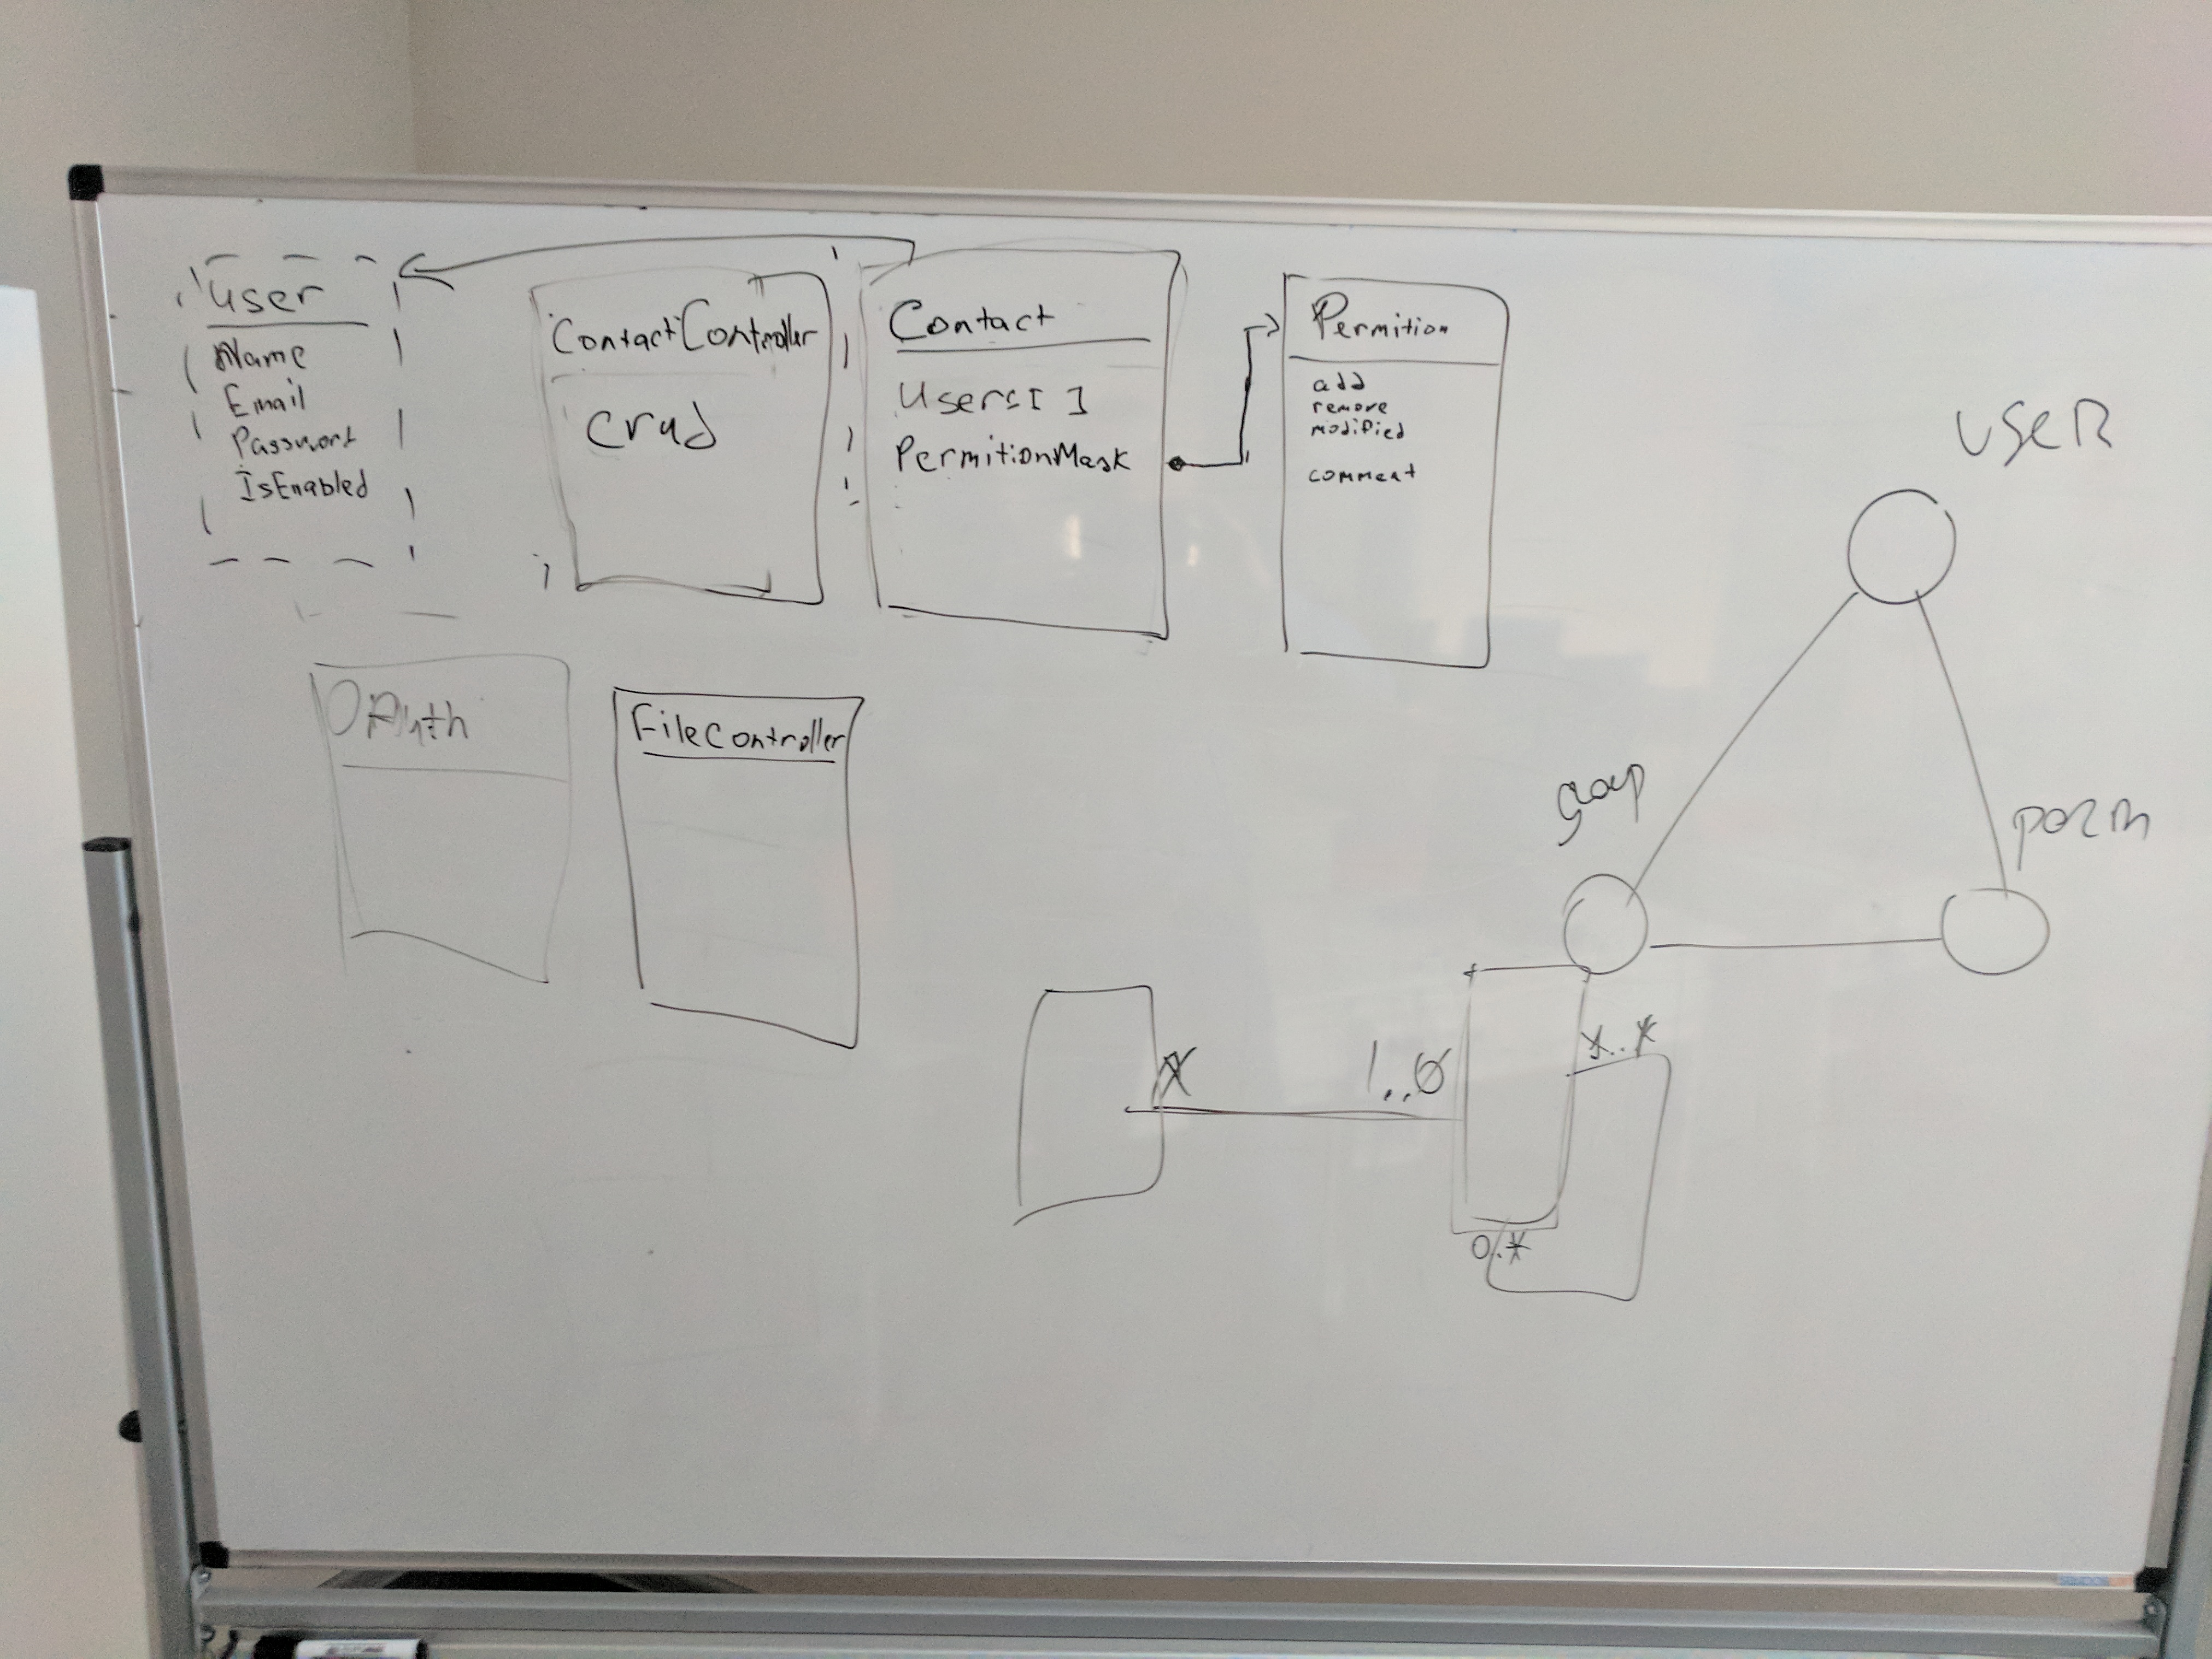 user
Name
Email
Password
IsEnabled
ContactController
Crud
Contact
Users[ ]
PermitionMask
Permition
add
remove
modified
comment
OAuth
FileController
USER
group
perm
*
1..0
*..*
0.*